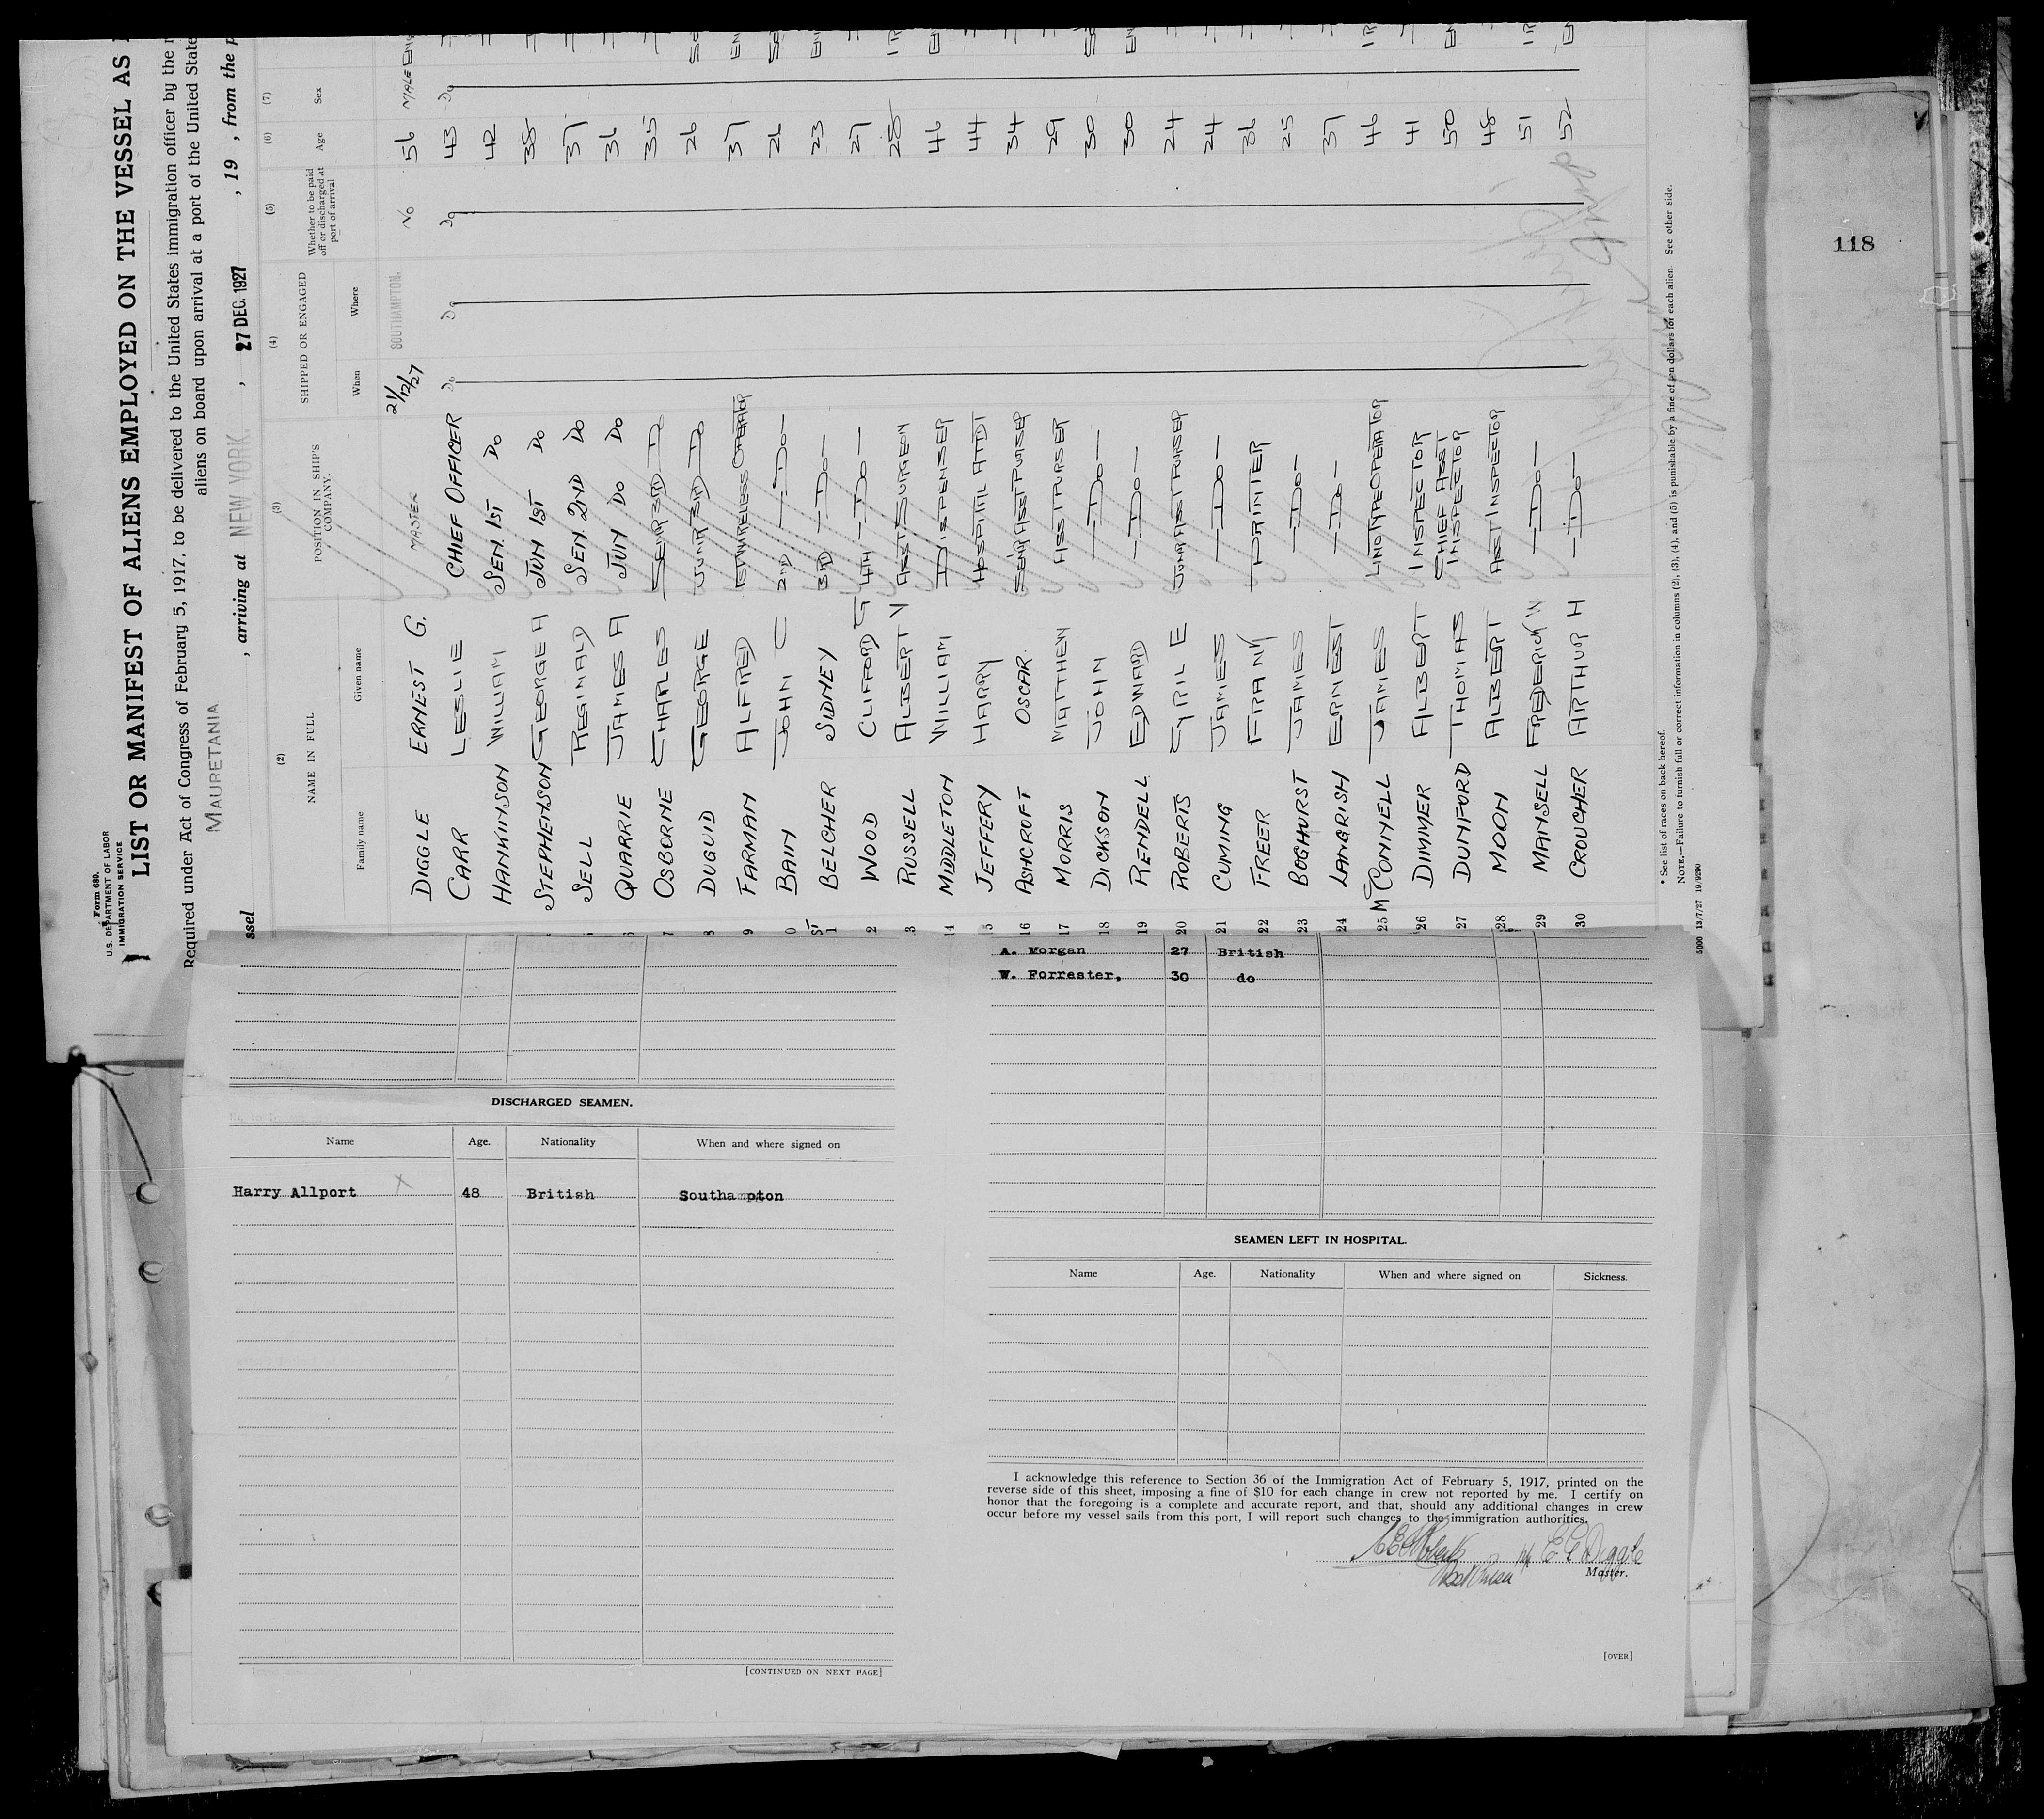 Form 680.
U.S. DEPARTMENT OF LABOR
IMMIGRATION SERVICE
LIST OR MANIFEST OF ALIENS EMPLOYED ON THE VESSEL AS
Required under Act of Congress of February 5, 1917, to be delivered to the United States immigration officer by the
aliens on board upon arrival at a port of the United State
ssel MAURETANIA , arriving at NEW YORK. , 27 DEC. 1927 , 19 , from the p
(2) (3) (4) (5) (6) (7)
NAME IN FULL POSITION IN SHIP'S COMPANY. SHIPPED OR ENGAGED Whether to be paid off or discharged at port of arrival Age Sex
Family name Given name When Where
DIGGLE ERNEST G. MASTER 21/12/27 SOUTHAMPTON. No 56 MALE
CARR LESLIE CHIEF OFFICER Do Do Do 43 Do
HANKINSON WILLIAM SEN. 1ST Do 42
STEPHENSON GEORGE A JUN 1ST Do 38
5 SELL REGINALD SEN. 2ND Do 37
6 QUARRIE JAMES A JUN Do Do 36
7 OSBORNE CHARLES SENR 3RD Do 35
8 DUGUID GEORGE JUNR 3RD Do 26
9 FARMAN ALFRED WIRELESS OPERATOR 37
0 BAIN JOHN C 2ND —Do— 26
1 BELCHER SIDNEY 3RD —Do— 23
2 WOOD CLIFFORD G 4TH —Do— 27
3 RUSSELL ALBERT V ASST SURGEON 28
14 MIDDLETON WILLIAM DISPENSER 46
15 JEFFERY HARRY HOSPITAL ATTDT 44
16 ASHCROFT OSCAR. SENR ASST PURSER 34
17 MORRIS MATTHEW ASST PURSER 29
18 DICKSON JOHN —Do— 30
19 RENDELL EDWARD —Do— 30
20 ROBERTS CYRIL E JUNR ASST PURSER 24
21 CUMING JAMES —Do— 24
22 FREER FRANK PRINTER 36
23 BOGHURST JAMES —Do— 25
24 LANGRISH ERNEST —Do— 37
25 McCONNELL JAMES LINOTYPE OPERATOR 46
26 DIMMER ALBERT INSPECTOR 41
27 DUNIFORD THOMAS CHIEF ASST INSPECTOR 50
28 MOON ALBERT ASST INSPECTOR 48
29 MANSELL FREDERICK W —Do— 51
30 CROUCHER ARTHUR H —Do— 52
* See list of races on back hereof.
NOTE.—Failure to furnish full or correct information in columns (2), (3), (4), and (5) is punishable by a fine of ten dollars for each alien. See other side.
5000 13/7/27 19/9290
118
DISCHARGED SEAMEN.
Name Age. Nationality When and where signed on
Harry Allport 48 British Southampton
[CONTINUED ON NEXT PAGE]
A. Morgan 27 British
W. Forrester, 30 do
SEAMEN LEFT IN HOSPITAL.
Name Age. Nationality When and where signed on Sickness.
I acknowledge this reference to Section 36 of the Immigration Act of February 5, 1917, printed on the
reverse side of this sheet, imposing a fine of $10 for each change in crew not reported by me. I certify on
honor that the foregoing is a complete and accurate report, and that, should any additional changes in crew
occur before my vessel sails from this port, I will report such changes to the immigration authorities.
E G Diggle
Master.
[OVER]